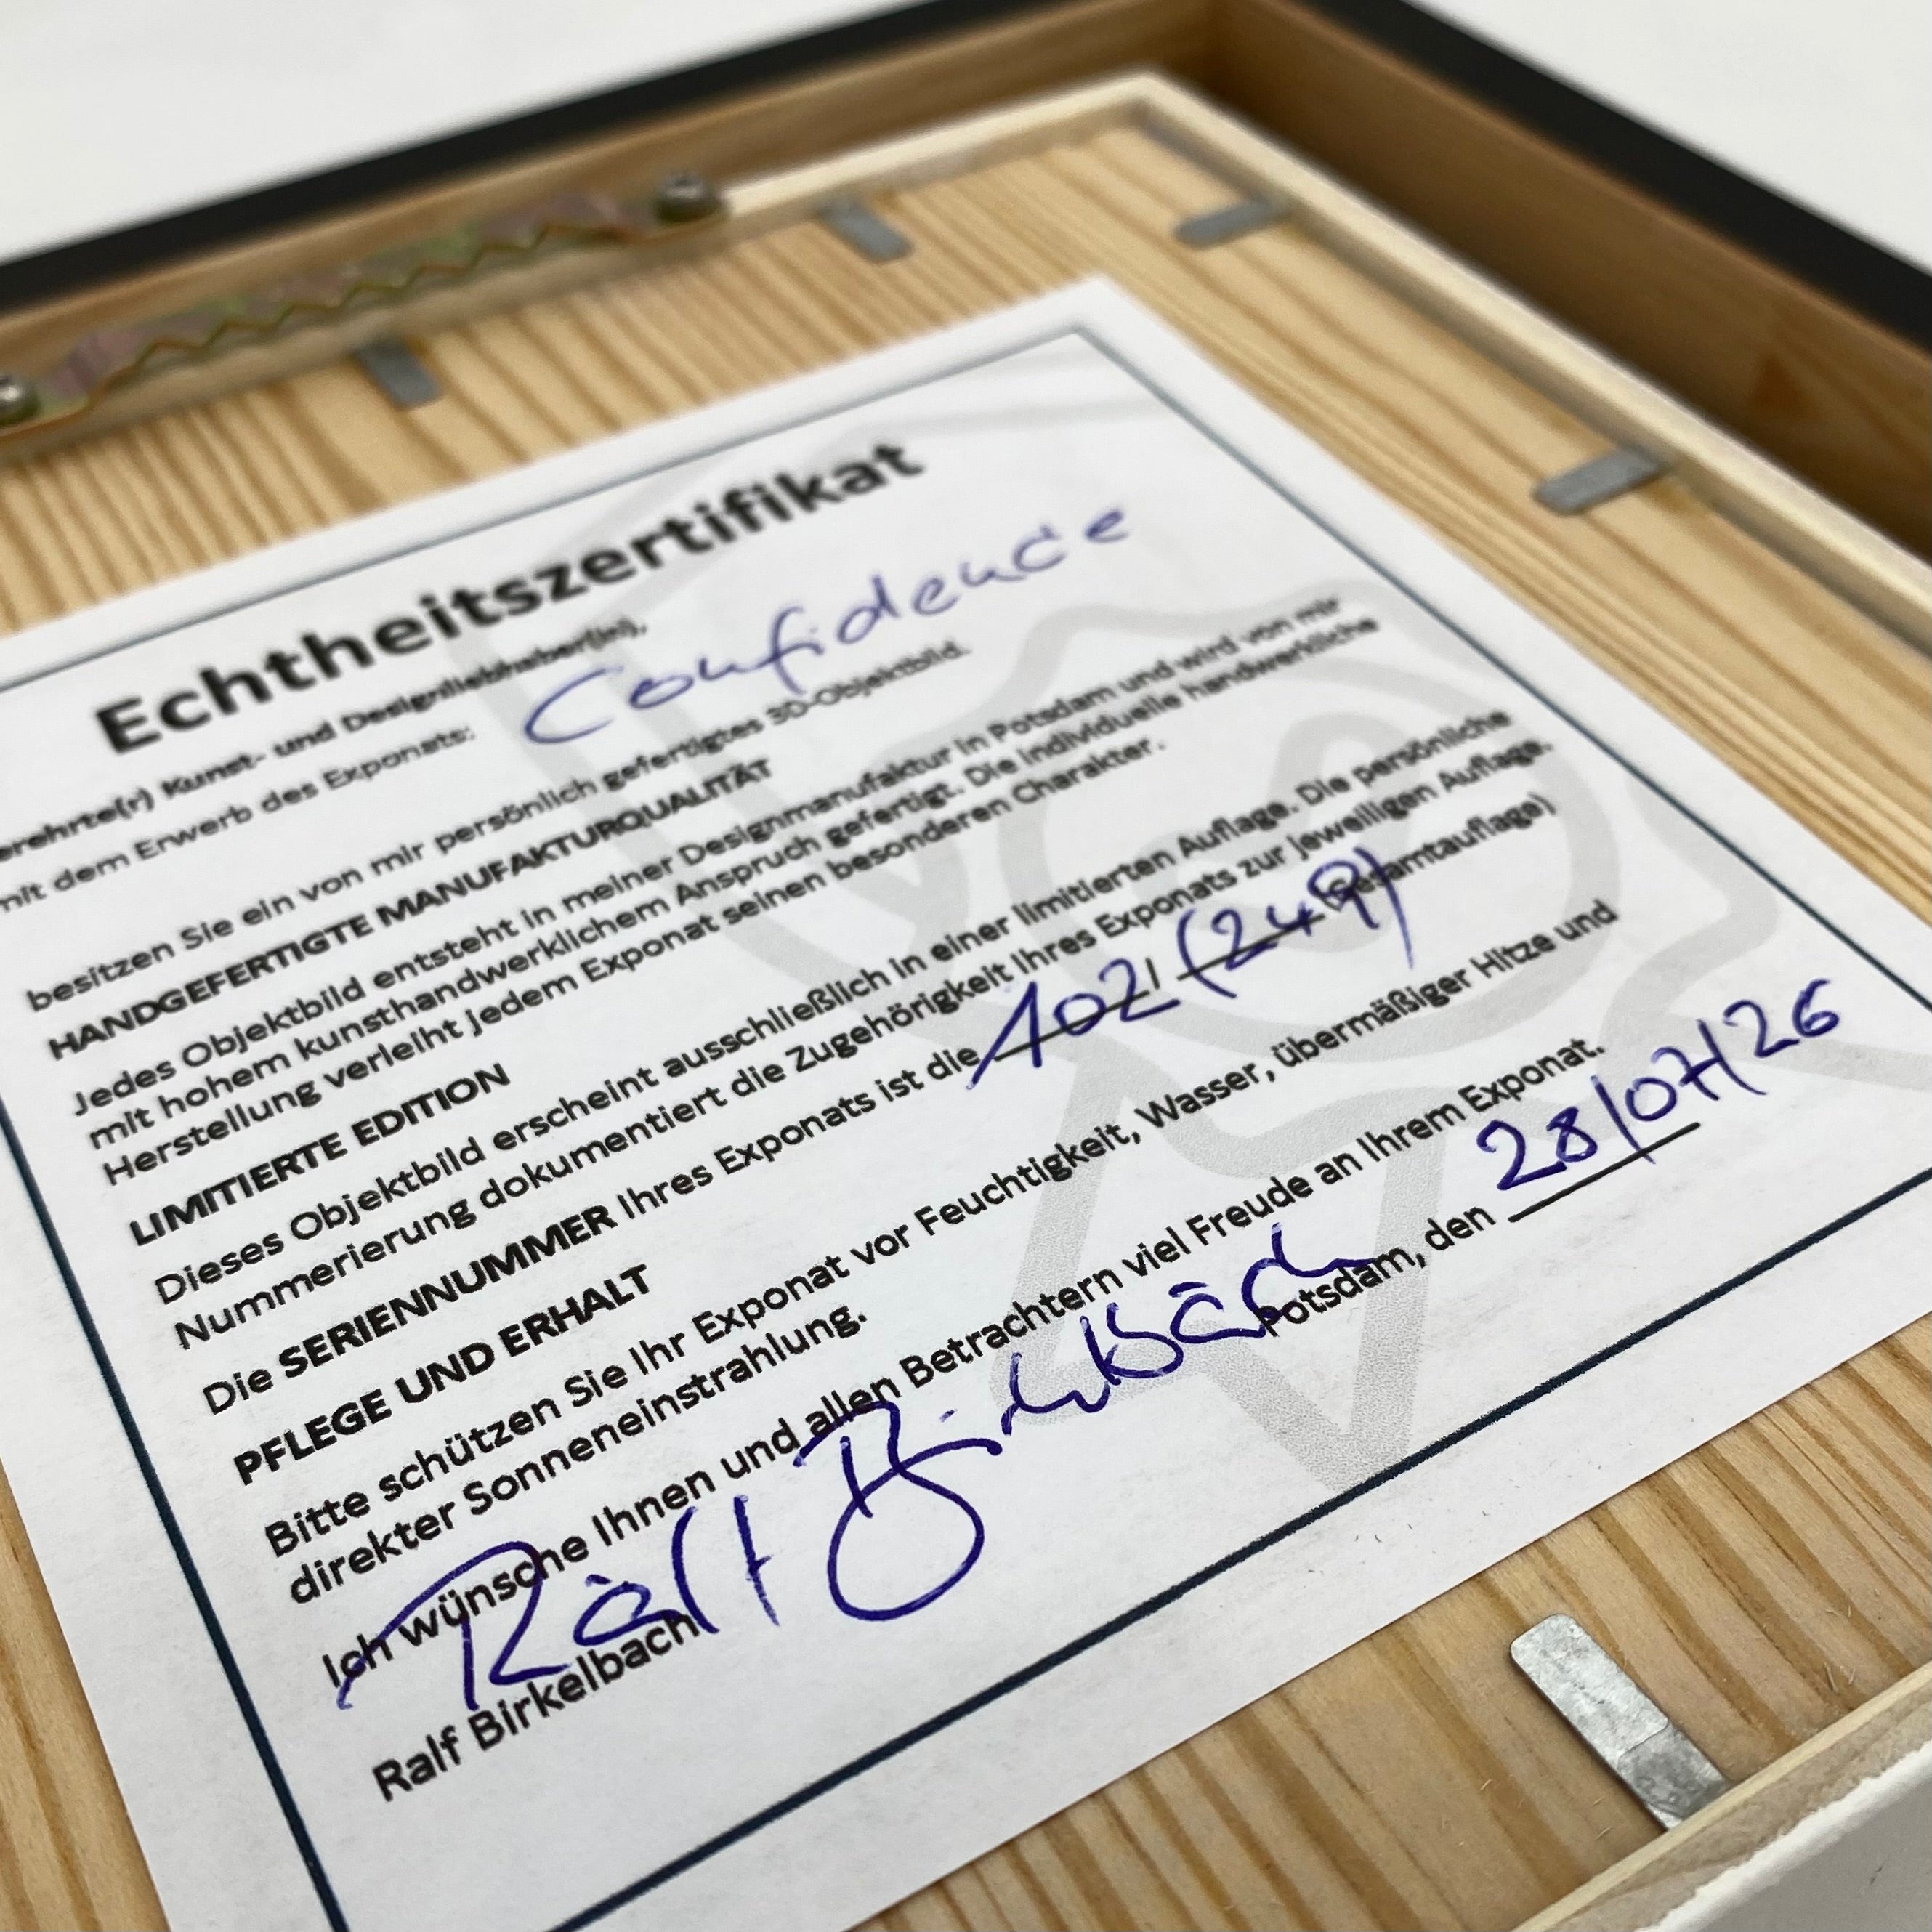 Echtheitszertifikat
erehrte(r) Kunst- und Designliebhaber(in),
mit dem Erwerb des Exponats: Confidence
besitzen Sie ein von mir persönlich gefertigtes 3D-Objektbild.
HANDGEFERTIGTE MANUFAKTURQUALITÄT
Jedes Objektbild entsteht in meiner Designmanufaktur in Potsdam und wird von mir
mit hohem kunsthandwerklichem Anspruch gefertigt. Die individuelle handwerkliche
Herstellung verleiht jedem Exponat seinen besonderen Charakter.
LIMITIERTE EDITION
Dieses Objektbild erscheint ausschließlich in einer limitierten Auflage. Die persönliche
Nummerierung dokumentiert die Zugehörigkeit Ihres Exponats zur jeweiligen Auflage.
Die SERIENNUMMER Ihres Exponats ist die 102 / (249) (Gesamtauflage)
PFLEGE UND ERHALT
Bitte schützen Sie Ihr Exponat vor Feuchtigkeit, Wasser, übermäßiger Hitze und
direkter Sonneneinstrahlung.
Ich wünsche Ihnen und allen Betrachtern viel Freude an Ihrem Exponat.
Potsdam, den 28/07/26
Ralf Birkelbach
Ralf Birkelbach